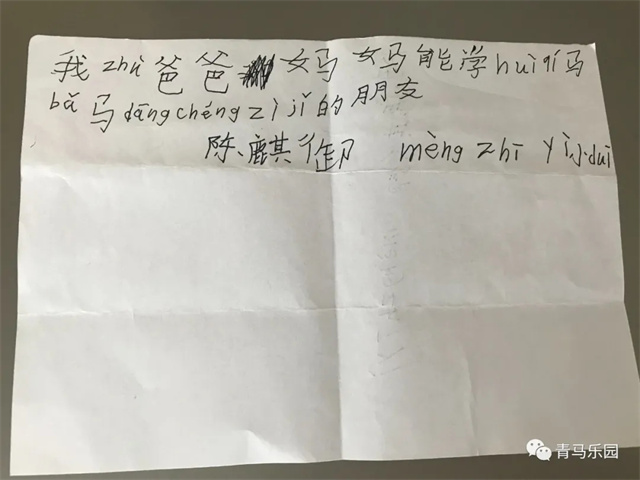 我zhù爸爸妈妈能学huìqí马
bǎ马dāngchéngzìjǐ的朋友
陈麒御 mèngzhī yì小duì
青马乐园